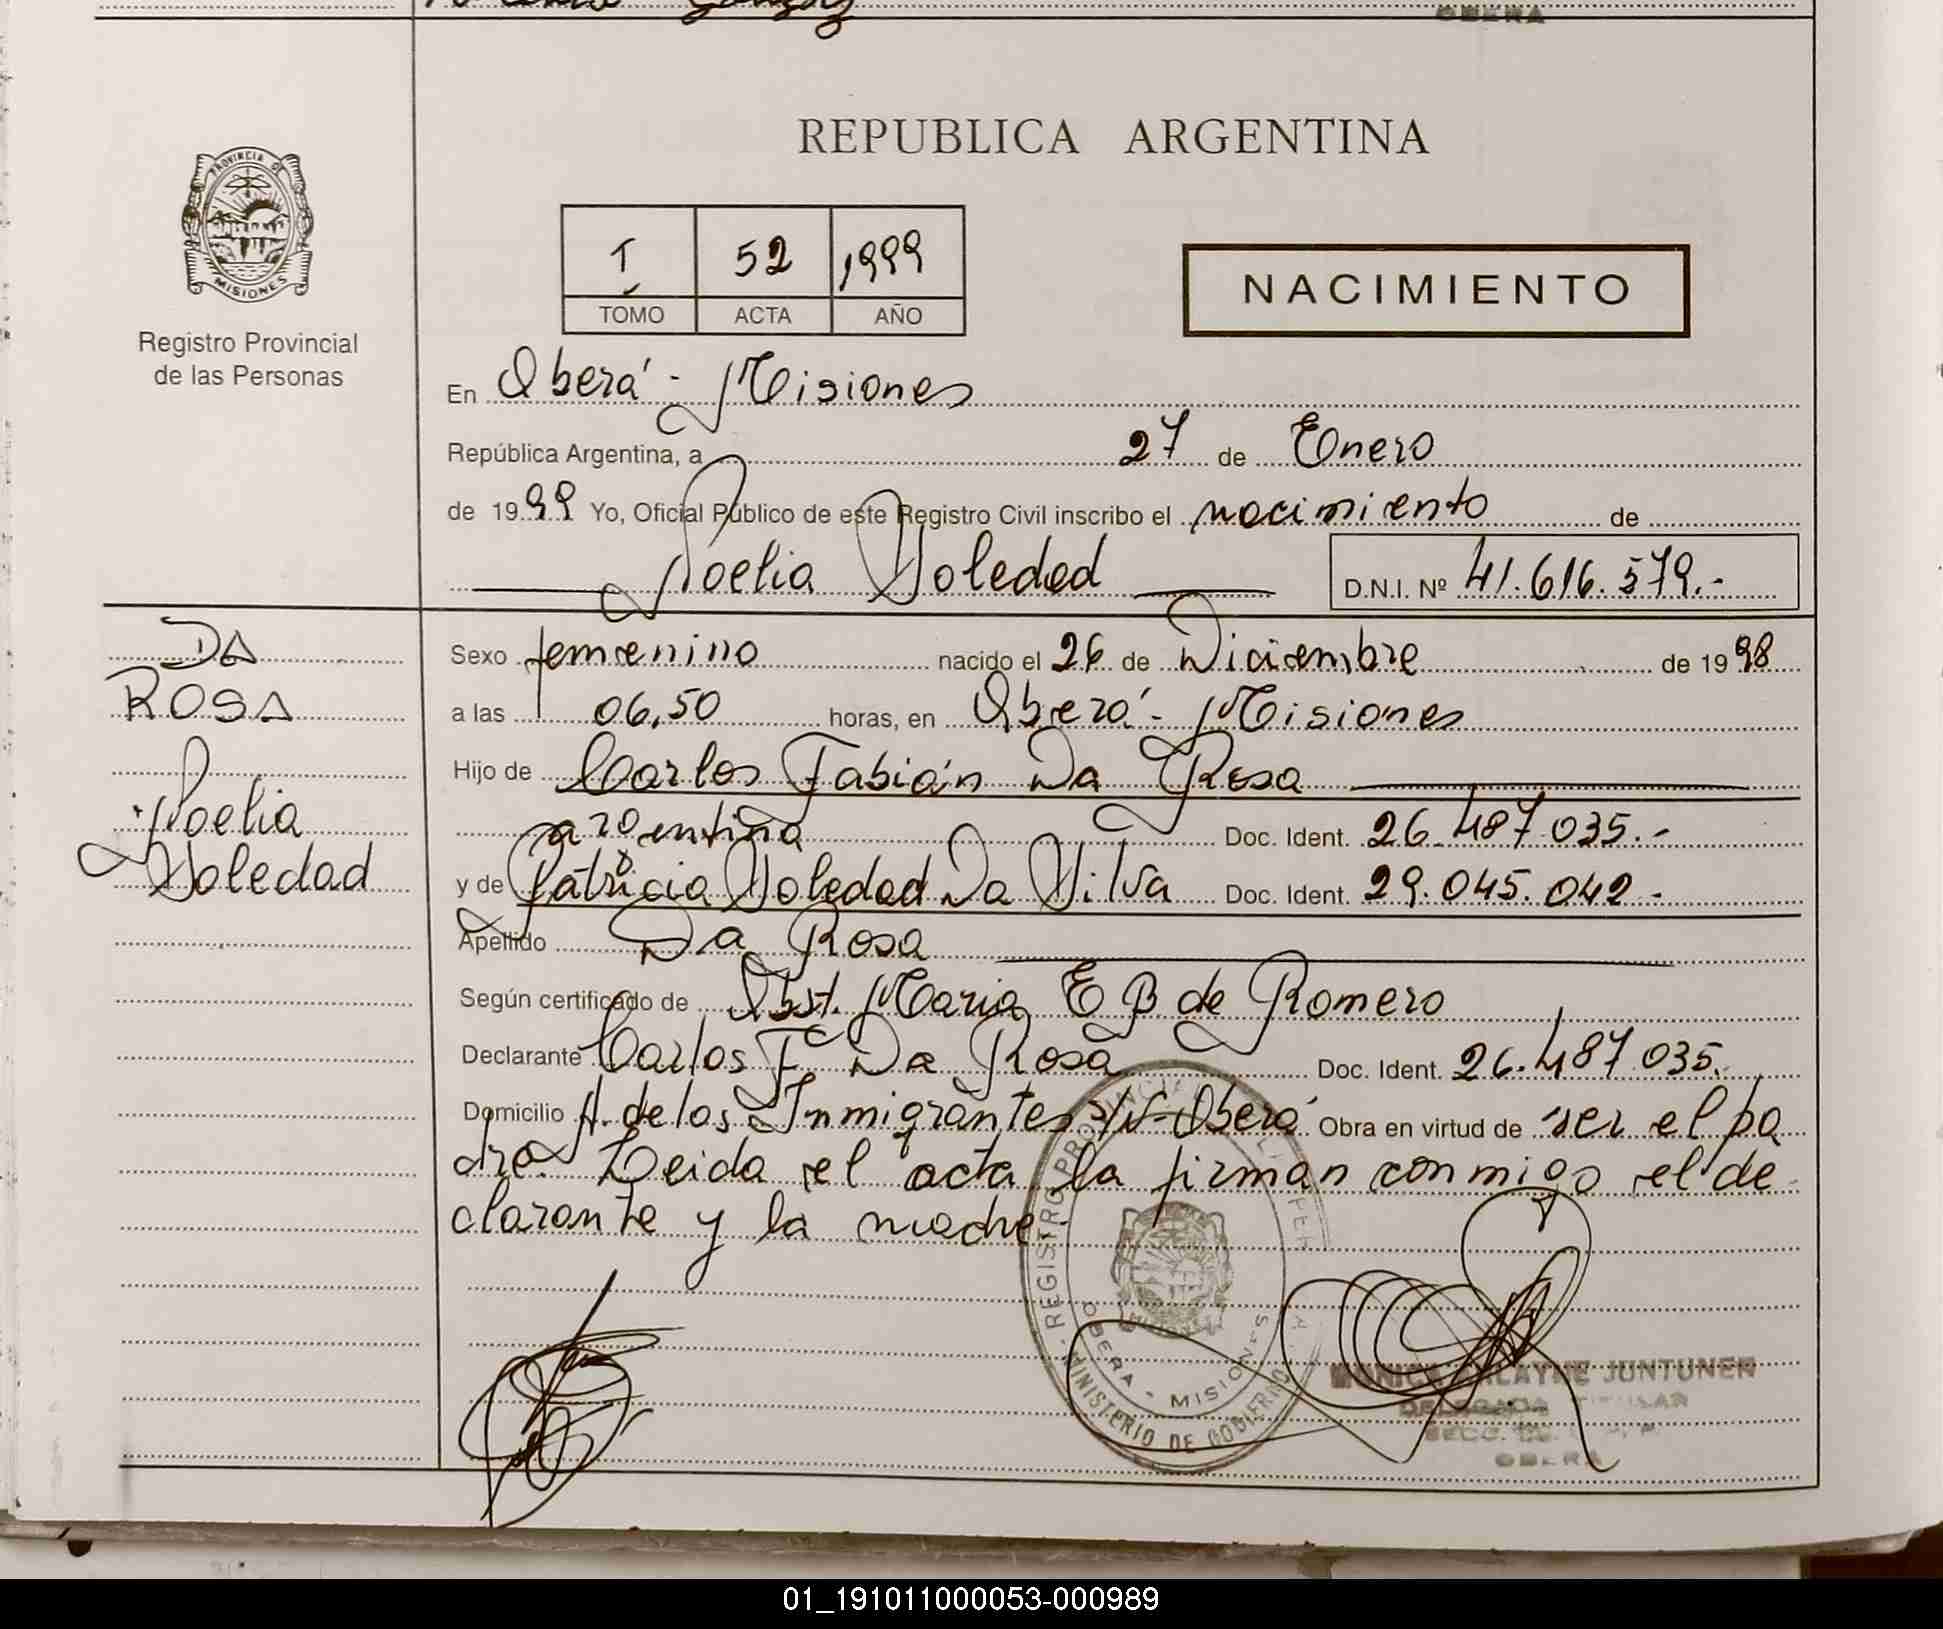 OBERA
REPUBLICA ARGENTINA
PROVINCIA DE
MISIONES
Registro Provincial
de las Personas
I 52 1999
TOMO ACTA AÑO
NACIMIENTO
En Oberá - Misiones
República Argentina, a 27 de Enero
de 1999 Yo, Oficial Público de este Registro Civil inscribo el nacimiento de
Noelia Soledad D.N.I. Nº 41.616.579.-
DA
ROSA
Noelia
Soledad
Sexo femenino nacido el 26 de Diciembre de 1998
a las 06,50 horas, en Oberá - Misiones
Hijo de Carlos Fabián Da Rosa
argentina Doc. Ident. 26.487.035.-
y de Patricia Soledad Da Silva Doc. Ident. 29.045.042-
Apellido Da Rosa
Según certificado de Obst. Maria E B de Romero
Declarante Carlos F. Da Rosa Doc. Ident. 26.487.035.
Domicilio A. de los Inmigrantes s/N-Oberá Obra en virtud de ser el pa
dre. Leida el acta la firman conmigo el de
clarante y la madre.
REGISTRO PROVINCIAL
OBERA - MISIONES
MINISTERIO DE GOBIERNO
MONICA JUNTUNEN
DELEGADA TITULAR
OBERA
01_191011000053-000989